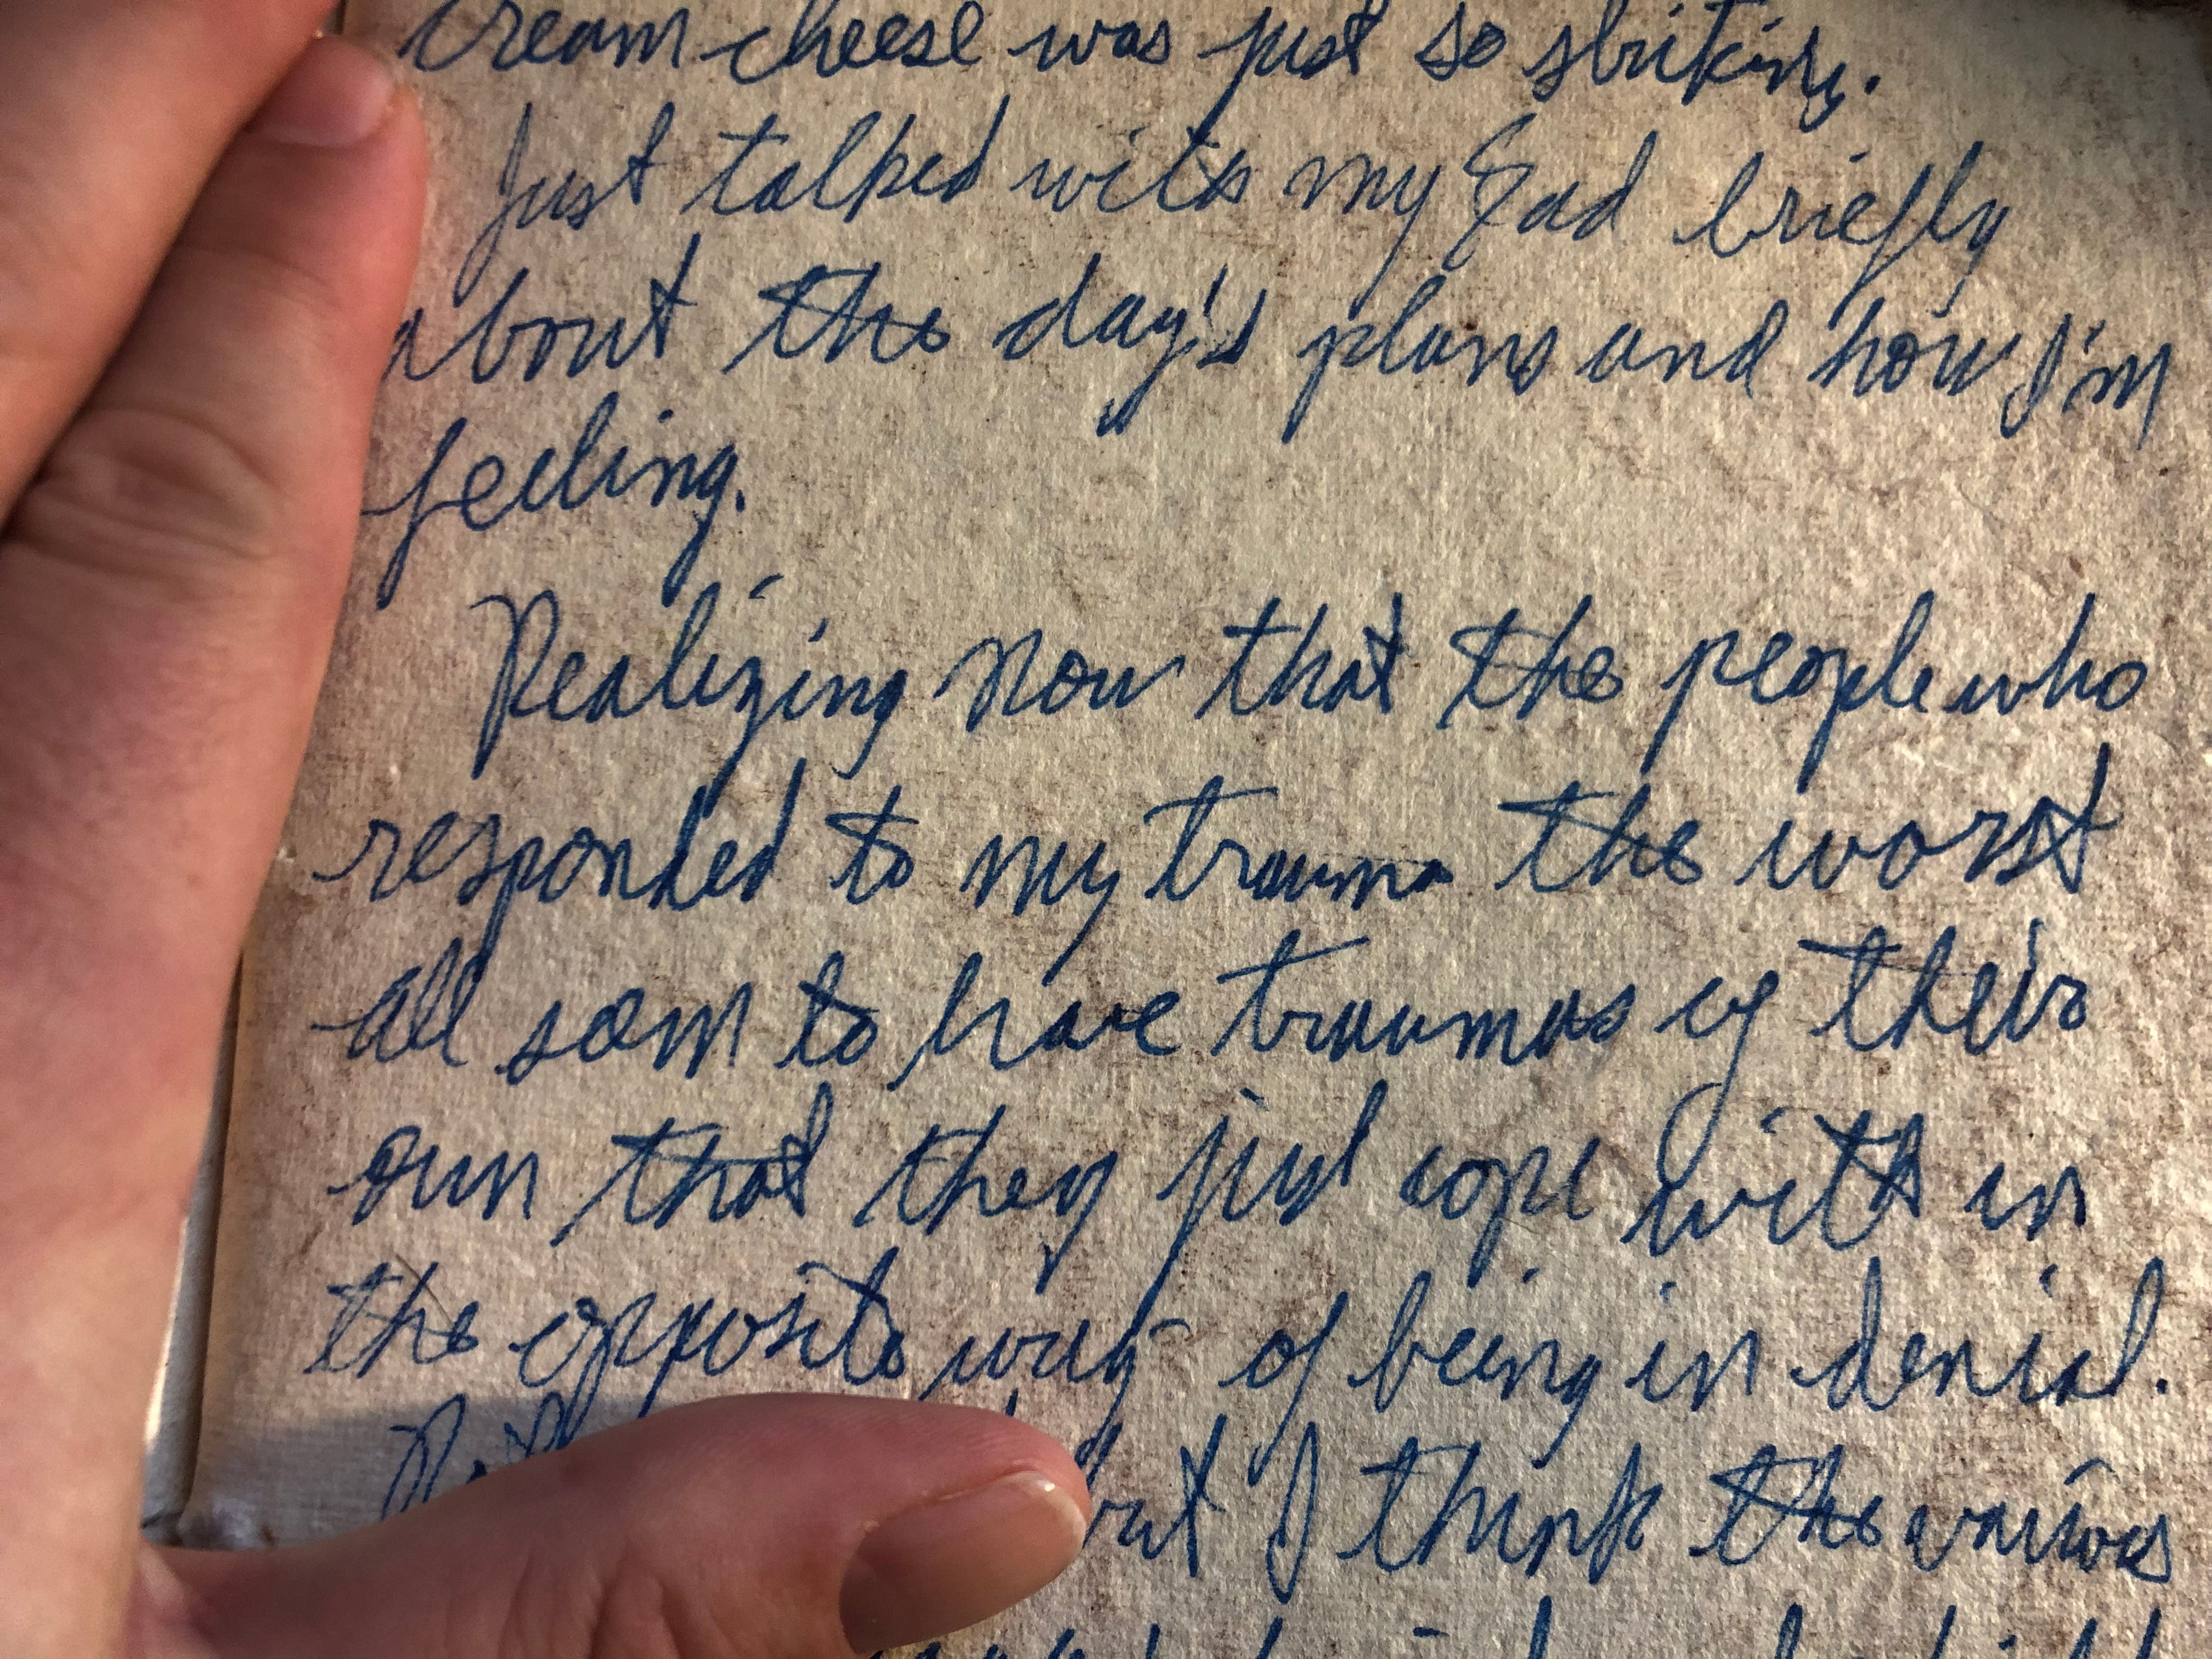 cream cheese was just so striking.
Just talked with my Dad briefly
about the day's plans and how I'm
feeling.
Realizing now that the people who
responded to my trauma the worst
all seem to have traumas of their
own that they just cope with in
the opposite way of being in denial.
but I think the various